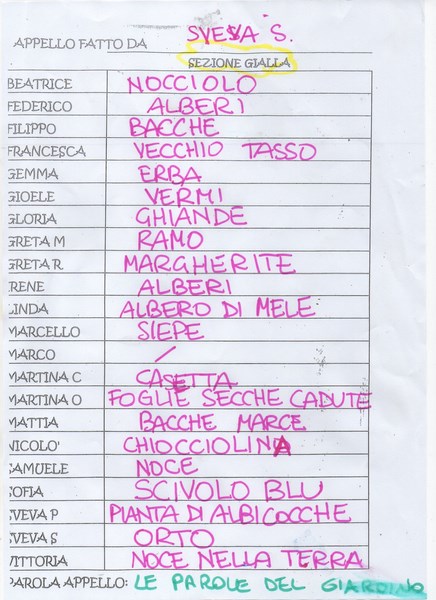 APPELLO FATTO DA SVEVA S.
SEZIONE GIALLA
BEATRICE NOCCIOLO
FEDERICO ALBERI
FILIPPO BACCHE
FRANCESCA VECCHIO TASSO
GEMMA ERBA
GIOELE VERMI
GLORIA GHIANDE
GRETA M RAMO
GRETA R MARGHERITE
IRENE ALBERI
LINDA ALBERO DI MELE
MARCELLO SIEPE
MARCO /
MARTINA C CASETTA
MARTINA O FOGLIE SECCHE CADUTE
MATTIA BACCHE MARCE
NICOLO' CHIOCCIOLINA
SAMUELE NOCE
SOFIA SCIVOLO BLU
SVEVA P PIANTA DI ALBICOCCHE
SVEVA S ORTO
VITTORIA NOCE NELLA TERRA
PAROLA APPELLO: LE PAROLE DEL GIARDINO